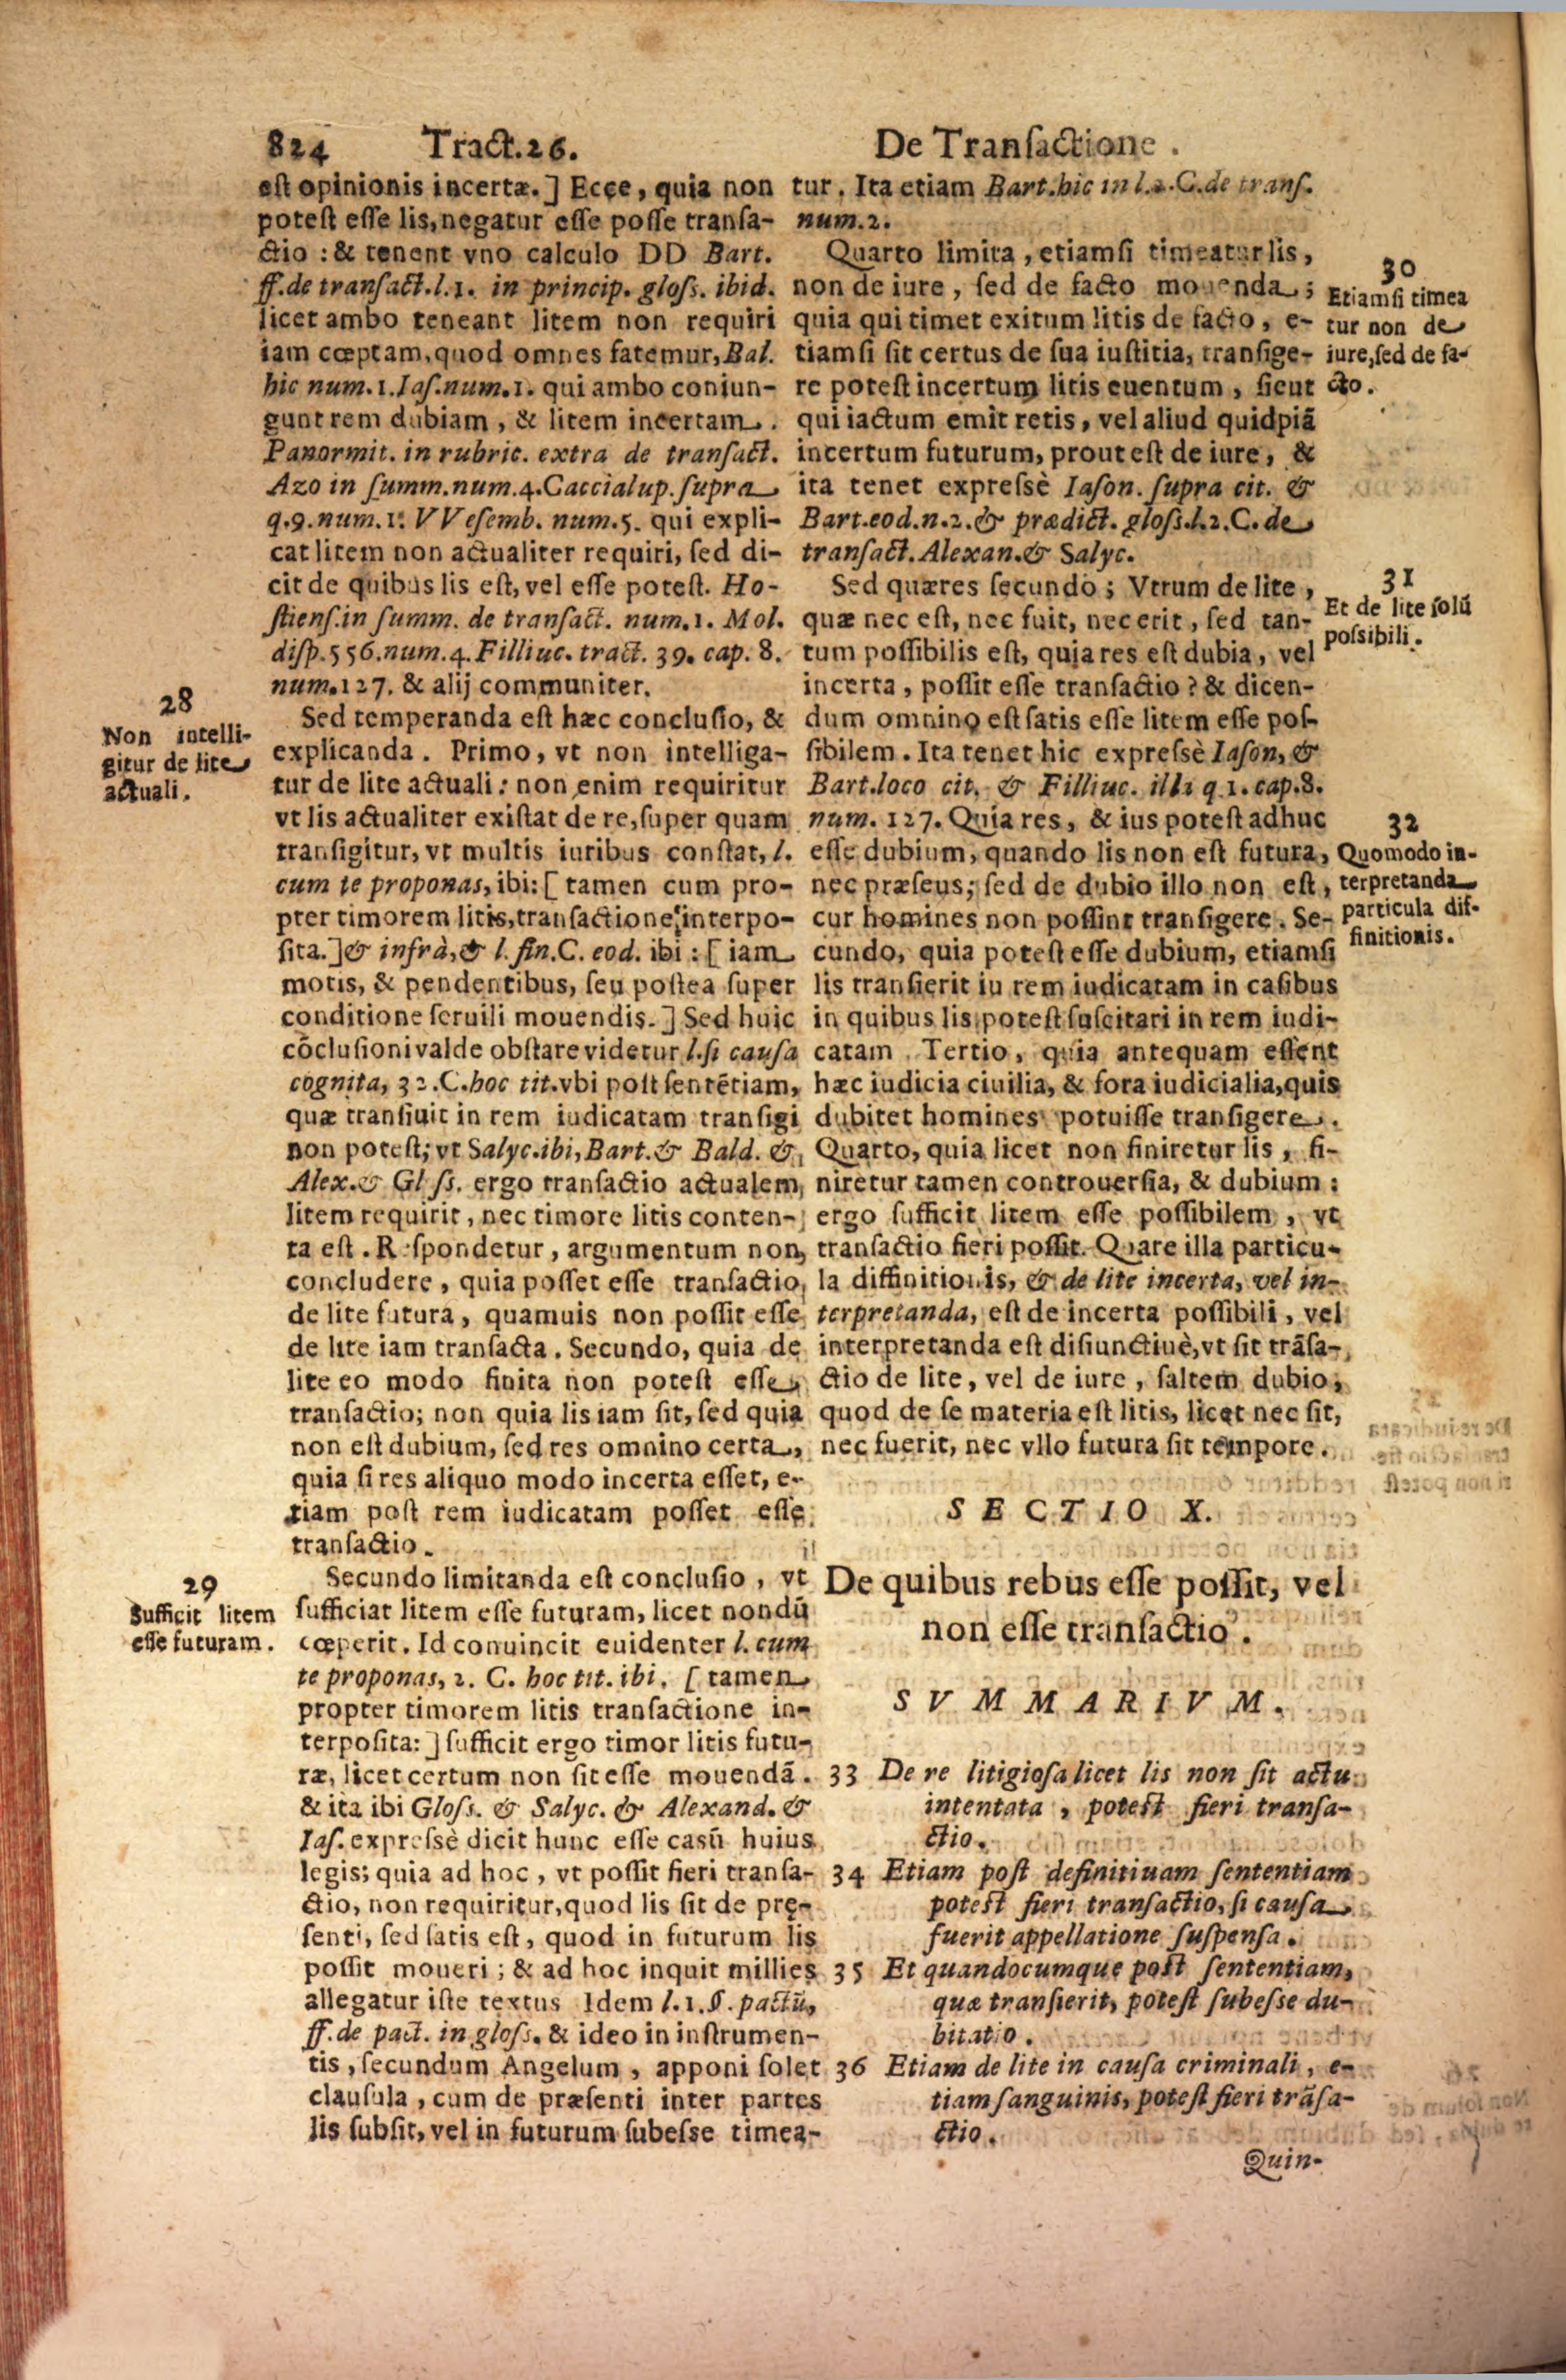 824 Tract.26. De Transactione.
est opinionis incertæ.] Ecce, quia non
potest esse lis, negatur esse posse transa-
ctio : & tenent vno calculo DD Bart.
ff.de transact.l.1. in princip. gloss. ibid.
licet ambo teneant litem non requiri
iam cœptam, quod omnes fatemur, Bal.
hic num.1.Ias.num.1. qui ambo coniun-
gunt rem dubiam , & litem incertam .
Panormit. in rubric. extra de transact.
Azo in summ.num.4.Caccialup.supra
q.9.num.1. VVesemb. num.5. qui expli-
cat litem non actualiter requiri, sed di-
cit de quibus lis est, vel esse potest. Ho-
stiens.in summ. de transact. num.1. Mol.
disp.556.num.4.Filliuc. tract. 39. cap. 8.
num.127. & alij communiter.
28
Non intelli-
gitur de lite
actuali.
Sed temperanda est hæc conclusio, &
explicanda . Primo, vt non intelliga-
tur de lite actuali : non enim requiritur
vt lis actualiter existat de re, super quam
transigitur, vt multis iuribus constat, l.
cum te proponas, ibi: [ tamen cum pro-
pter timorem litis, transactione interpo-
sita.] & infrà, & l. fin.C. eod. ibi : [ iam
motis, & pendentibus, seu postea super
conditione seruili mouendis. ] Sed huic
cõclusioni valde obstare videtur l.si causa
cognita, 32.C.hoc tit.vbi post sentẽtiam,
quæ transiuit in rem iudicatam transigi
non potest; vt Salyc.ibi, Bart.& Bald. &
Alex.& Gl ss. ergo transactio actualem
litem requirit , nec timore litis conten-
ta est . Respondetur , argumentum non
concludere , quia posset esse transactio
de lite futura , quamuis non possit esse
de lite iam transacta . Secundo, quia de
lite eo modo finita non potest esse
transactio; non quia lis iam sit, sed quia
non est dubium, sed res omnino certa ,
quia si res aliquo modo incerta esset, e-
tiam post rem iudicatam posset esse
transactio .
29
Sufficit litem
esse futuram.
Secundo limitanda est conclusio , vt
sufficiat litem esse futuram, licet nondũ
cœperit. Id conuincit euidenter l. cum
te proponas, 2. C. hoc tit. ibi. [ tamen
propter timorem litis transactione in-
terposita: ] sufficit ergo timor litis futu-
ræ, licet certum non sit esse mouendã .
& ita ibi Gloss. & Salyc. & Alexand. &
Ias. expressè dicit hunc esse casũ huius
legis; quia ad hoc , vt possit fieri transa-
ctio, non requiritur, quod lis sit de prę-
senti, sed satis est , quod in futurum lis
possit moueri ; & ad hoc inquit millies
allegatur iste textus Idem l.1.§. pactũ,
ff.de pact. in gloss. & ideo in instrumen-
tis , secundum Angelum , apponi solet
clausula , cum de præsenti inter partes
lis subsit, vel in futurum subesse timea-
tur. Ita etiam Bart.hic in l.2.C.de trans.
num.2.
Quarto limita , etiamsi timeatur lis ,
non de iure , sed de facto mouenda ;
quia qui timet exitum litis de facto , e-
tiamsi sit certus de sua iustitia, transige-
re potest incertum litis euentum , sicut
qui iactum emit retis , vel aliud quidpiã
incertum futurum, prout est de iure , &
ita tenet expressè Iason. supra cit. &
Bart.eod.n.2.& prædict. gloss.l.2.C.de
transact.Alexan.& Salyc.
30
Etiamsi timea
tur non de
iure,sed de fa-
cto.
Sed quæres secundò ; Vtrum de lite ,
quæ nec est, nec fuit, nec erit , sed tan-
tum possibilis est, quia res est dubia , vel
incerta , possit esse transactio ? & dicen-
dum omnino est satis esse litem esse pos-
sibilem . Ita tenet hic expressè Iason, &
Bart.loco cit. & Filliuc. illi q.1. cap.8.
num. 127. Quia res , & ius potest adhuc
esse dubium, quando lis non est futura ,
nec præsens; sed de dubio illo non est ,
cur homines non possint transigere . Se-
cundo, quia potest esse dubium, etiamsi
lis transierit in rem iudicatam in casibus
in quibus lis potest suscitari in rem iudi-
catam . Tertio , quia antequam essent
hæc iudicia ciuilia, & fora iudicialia, quis
dubitet homines potuisse transigere .
Quarto, quia licet non finiretur lis , fi-
niretur tamen controuersia, & dubium :
ergo sufficit litem esse possibilem , vt
transactio fieri possit. Quare illa particu-
la diffinitionis, & de lite incerta, vel in-
terpretanda, est de incerta possibili , vel
interpretanda est disiunctiuè, vt sit trãsa-
ctio de lite , vel de iure , saltem dubio ,
quod de se materia est litis, licet nec sit,
nec fuerit, nec vllo futura sit tempore .
31
Et de lite solũ
possibili.
32
Quomodo in-
terpretanda
particula dif-
finitionis.
SECTIO X.
De quibus rebus esse possit, vel
non esse transactio .
SVMMARIVM.
33 De re litigiosa licet lis non sit actu
intentata , potest fieri transa-
ctio.
34 Etiam post definitiuam sententiam
potest fieri transactio, si causa
fuerit appellatione suspensa .
35 Et quandocumque post sententiam,
quæ transierit, potest subesse du-
bitatio .
36 Etiam de lite in causa criminali , e-
tiam sanguinis, potest fieri trãsa-
ctio .
Quin-